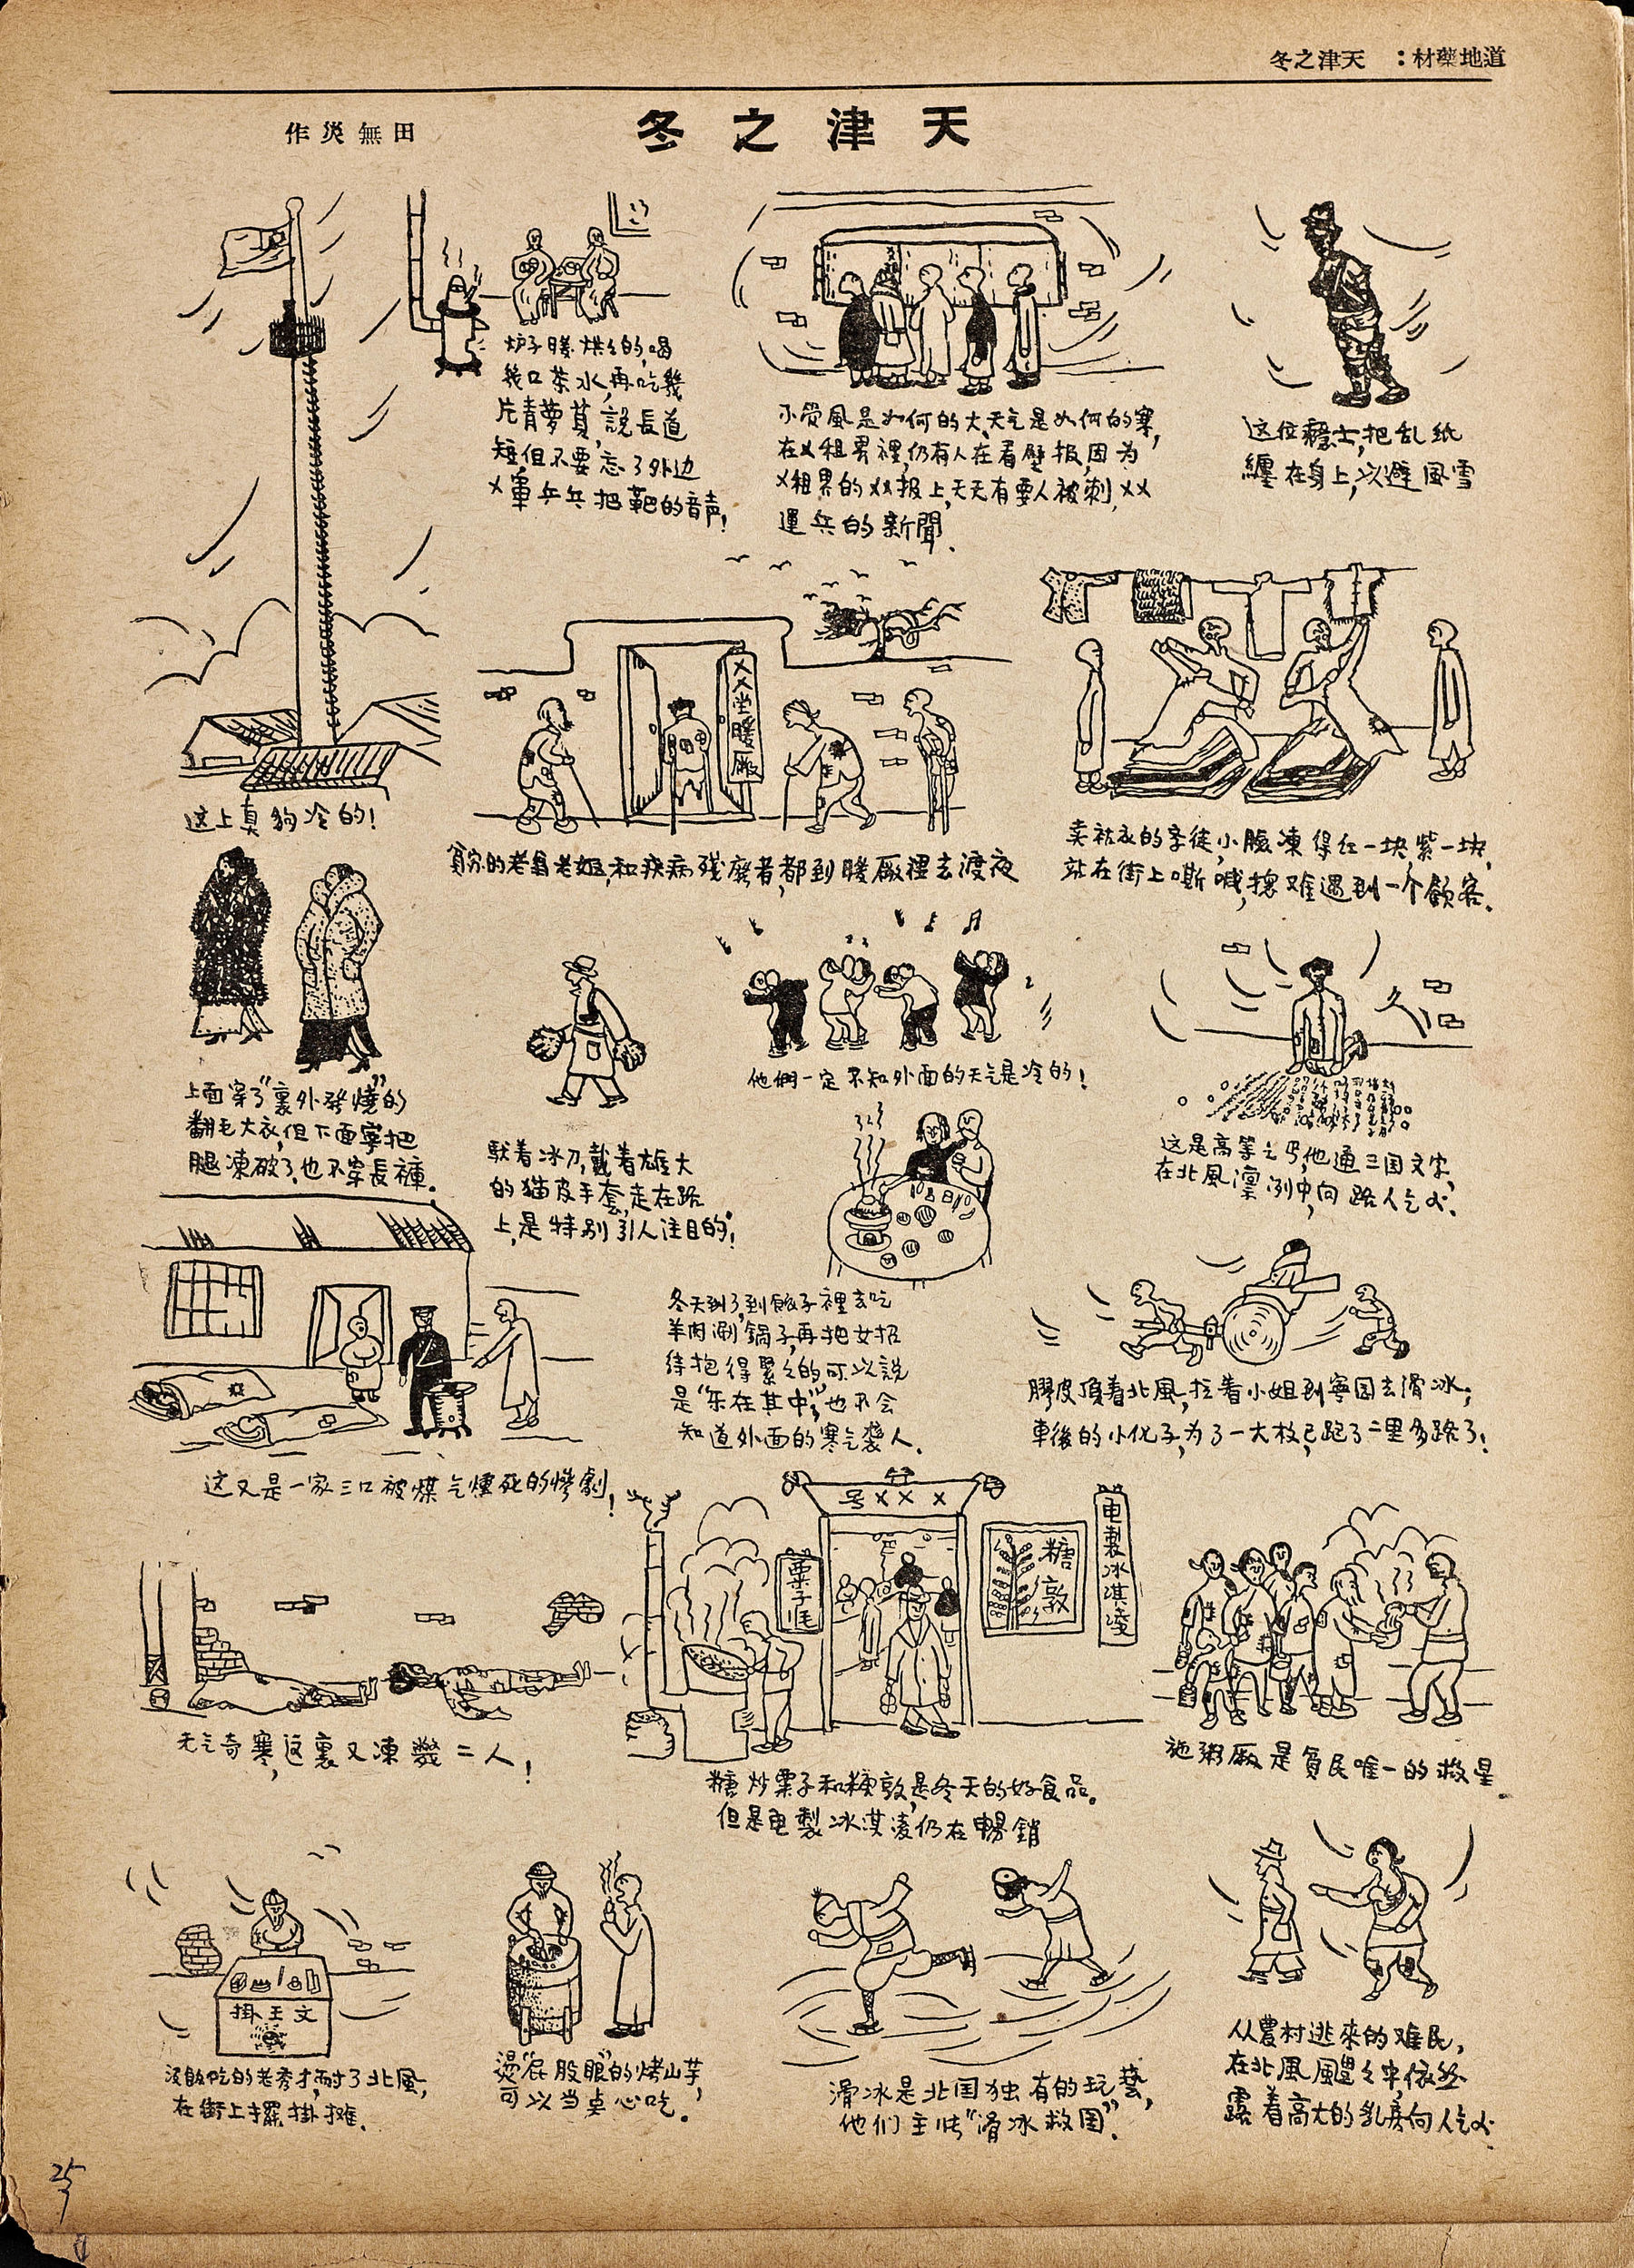 道地藥材： 天津之冬
天津之冬
田無災作
炉子暖烘々的,喝
幾口茶水,再吃幾
片青萝蔔,說長道
短,但不要忘了外边
X軍乒乓把靶的音声!
不管風是如何的大,天气是如何的寒,
在X租界裡,仍有人在看壁报,因为
X租界的XX报上,天天有要人被刺,XX
運兵的新聞.
这位癮士,把乱纸
纏在身上,以避風雪
这上真狗冷的!
XX堂暖廠
貧穷的老翁老嫗,和疾病残廢者,都到暖廠裡去渡夜
卖估衣的学徒,小臉凍得红一块,紫一块,
站在街上嘶喊,攘难遇到一个顧客.
上面穿了"裏外發燒"的
翻毛大衣,但下面寧把
腿凍破了,也不穿長褲.
馱着冰刀,戴着雄大
的猫皮手套,走在路
上,是特别引人注目的!
他們一定不知外面的天气是冷的!
这是高等乞丐,他通三国文字,
在北風凛冽中,向路人乞
这又是一家三口被煤气燻死的惨劇!
冬天到了,到館子裡去吃
羊肉涮鍋子,再把女招
待抱得緊々的,可以說
是"乐在其中",也不会
知道外面的寒气襲人.
膠皮頂着北風,拉着小姐到寧园去滑冰;
車後的小化子,为了一大枚,已跑了二里多路了!
天气奇寒,这裏又凍斃二人!
号XXX
栗子
糖
敦
电製冰淇凌
糖炒栗子和糖敦,是冬天的好食品。
但是电製冰淇凌仍在暢銷
施粥厰是貧民唯一的救星.
文王掛
沒飯吃的老秀才,耐了北風,
在街上擺掛攤.
燙"屁股眼"的烤山芋,
可以当桌心吃.
滑冰是北国独有的玩藝,
他们主张"滑冰救国".
从農村逃來的难民,
在北風颼々中,依然
露着高大的乳房向人乞
25